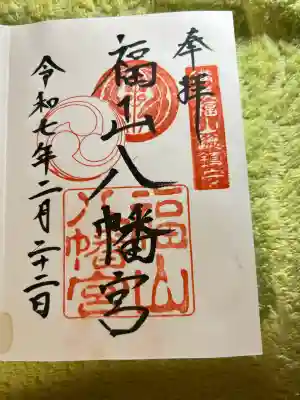 奉拝
福山総鎮守
福山八幡宮
福山八幡宮
令和七年二月二十二日